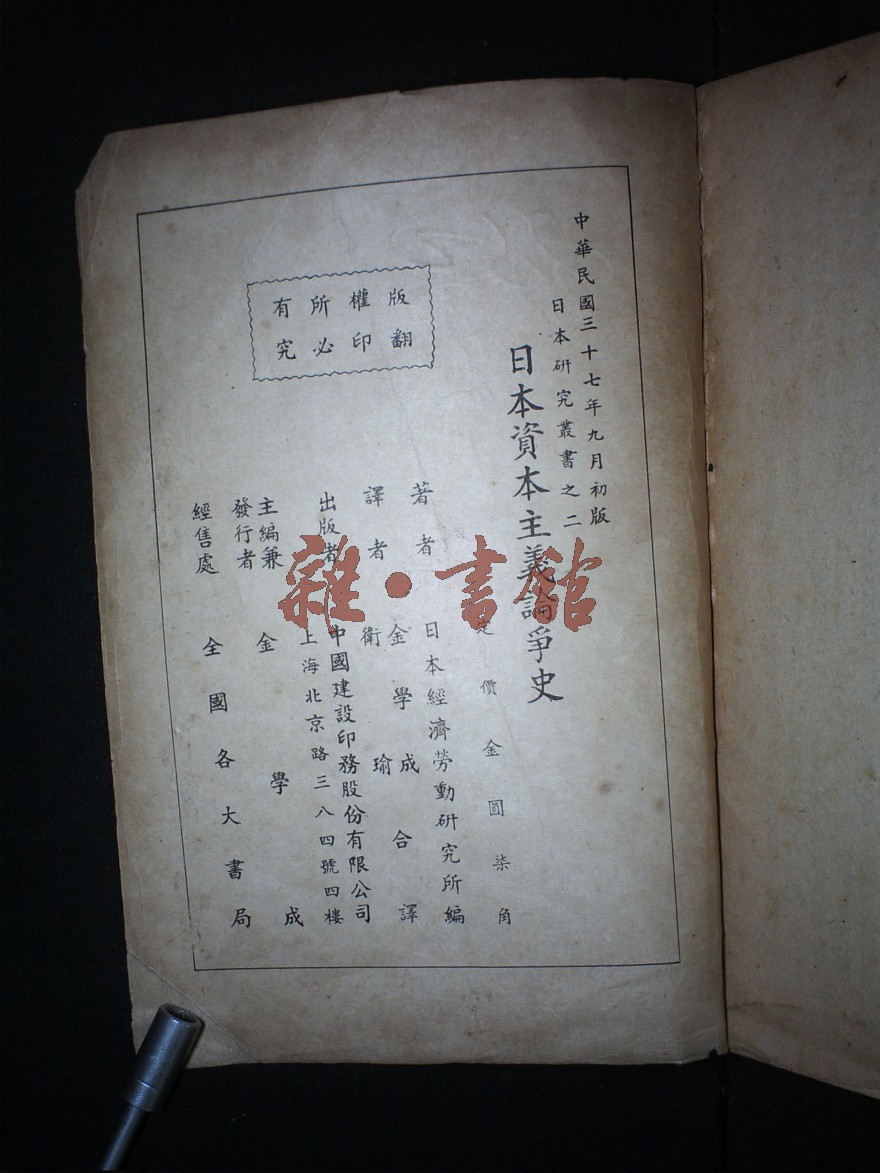 中華民國三十七年九月初版
日本研究叢書之二
日本資本主義論爭史
定價金圓柒角
著者 日本經濟勞動研究所編
譯者 金學成 衛瑜 合譯
出版者 中國建設印務股份有限公司
上海北京路三八四號四樓
主編兼發行者 金學成
經售處 全國各大書局
版權所有
翻印必究
雜·書館